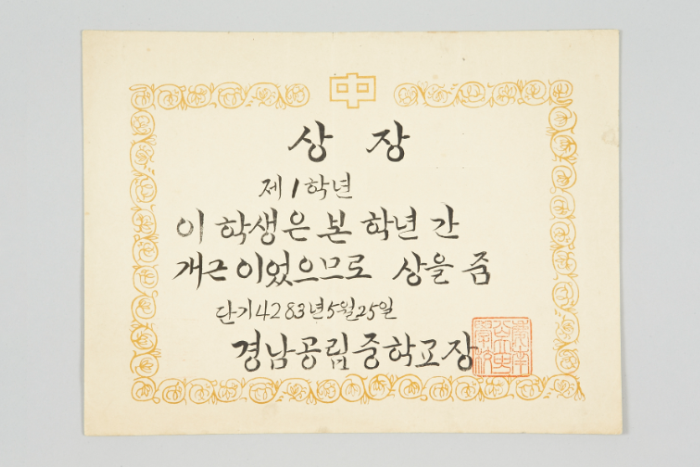 中
상 장
제 1 학년
이 학생은 본 학년 간
개근 이었으므로 상을 줌
단기 4283년 5월 25일
경남공립중학교장